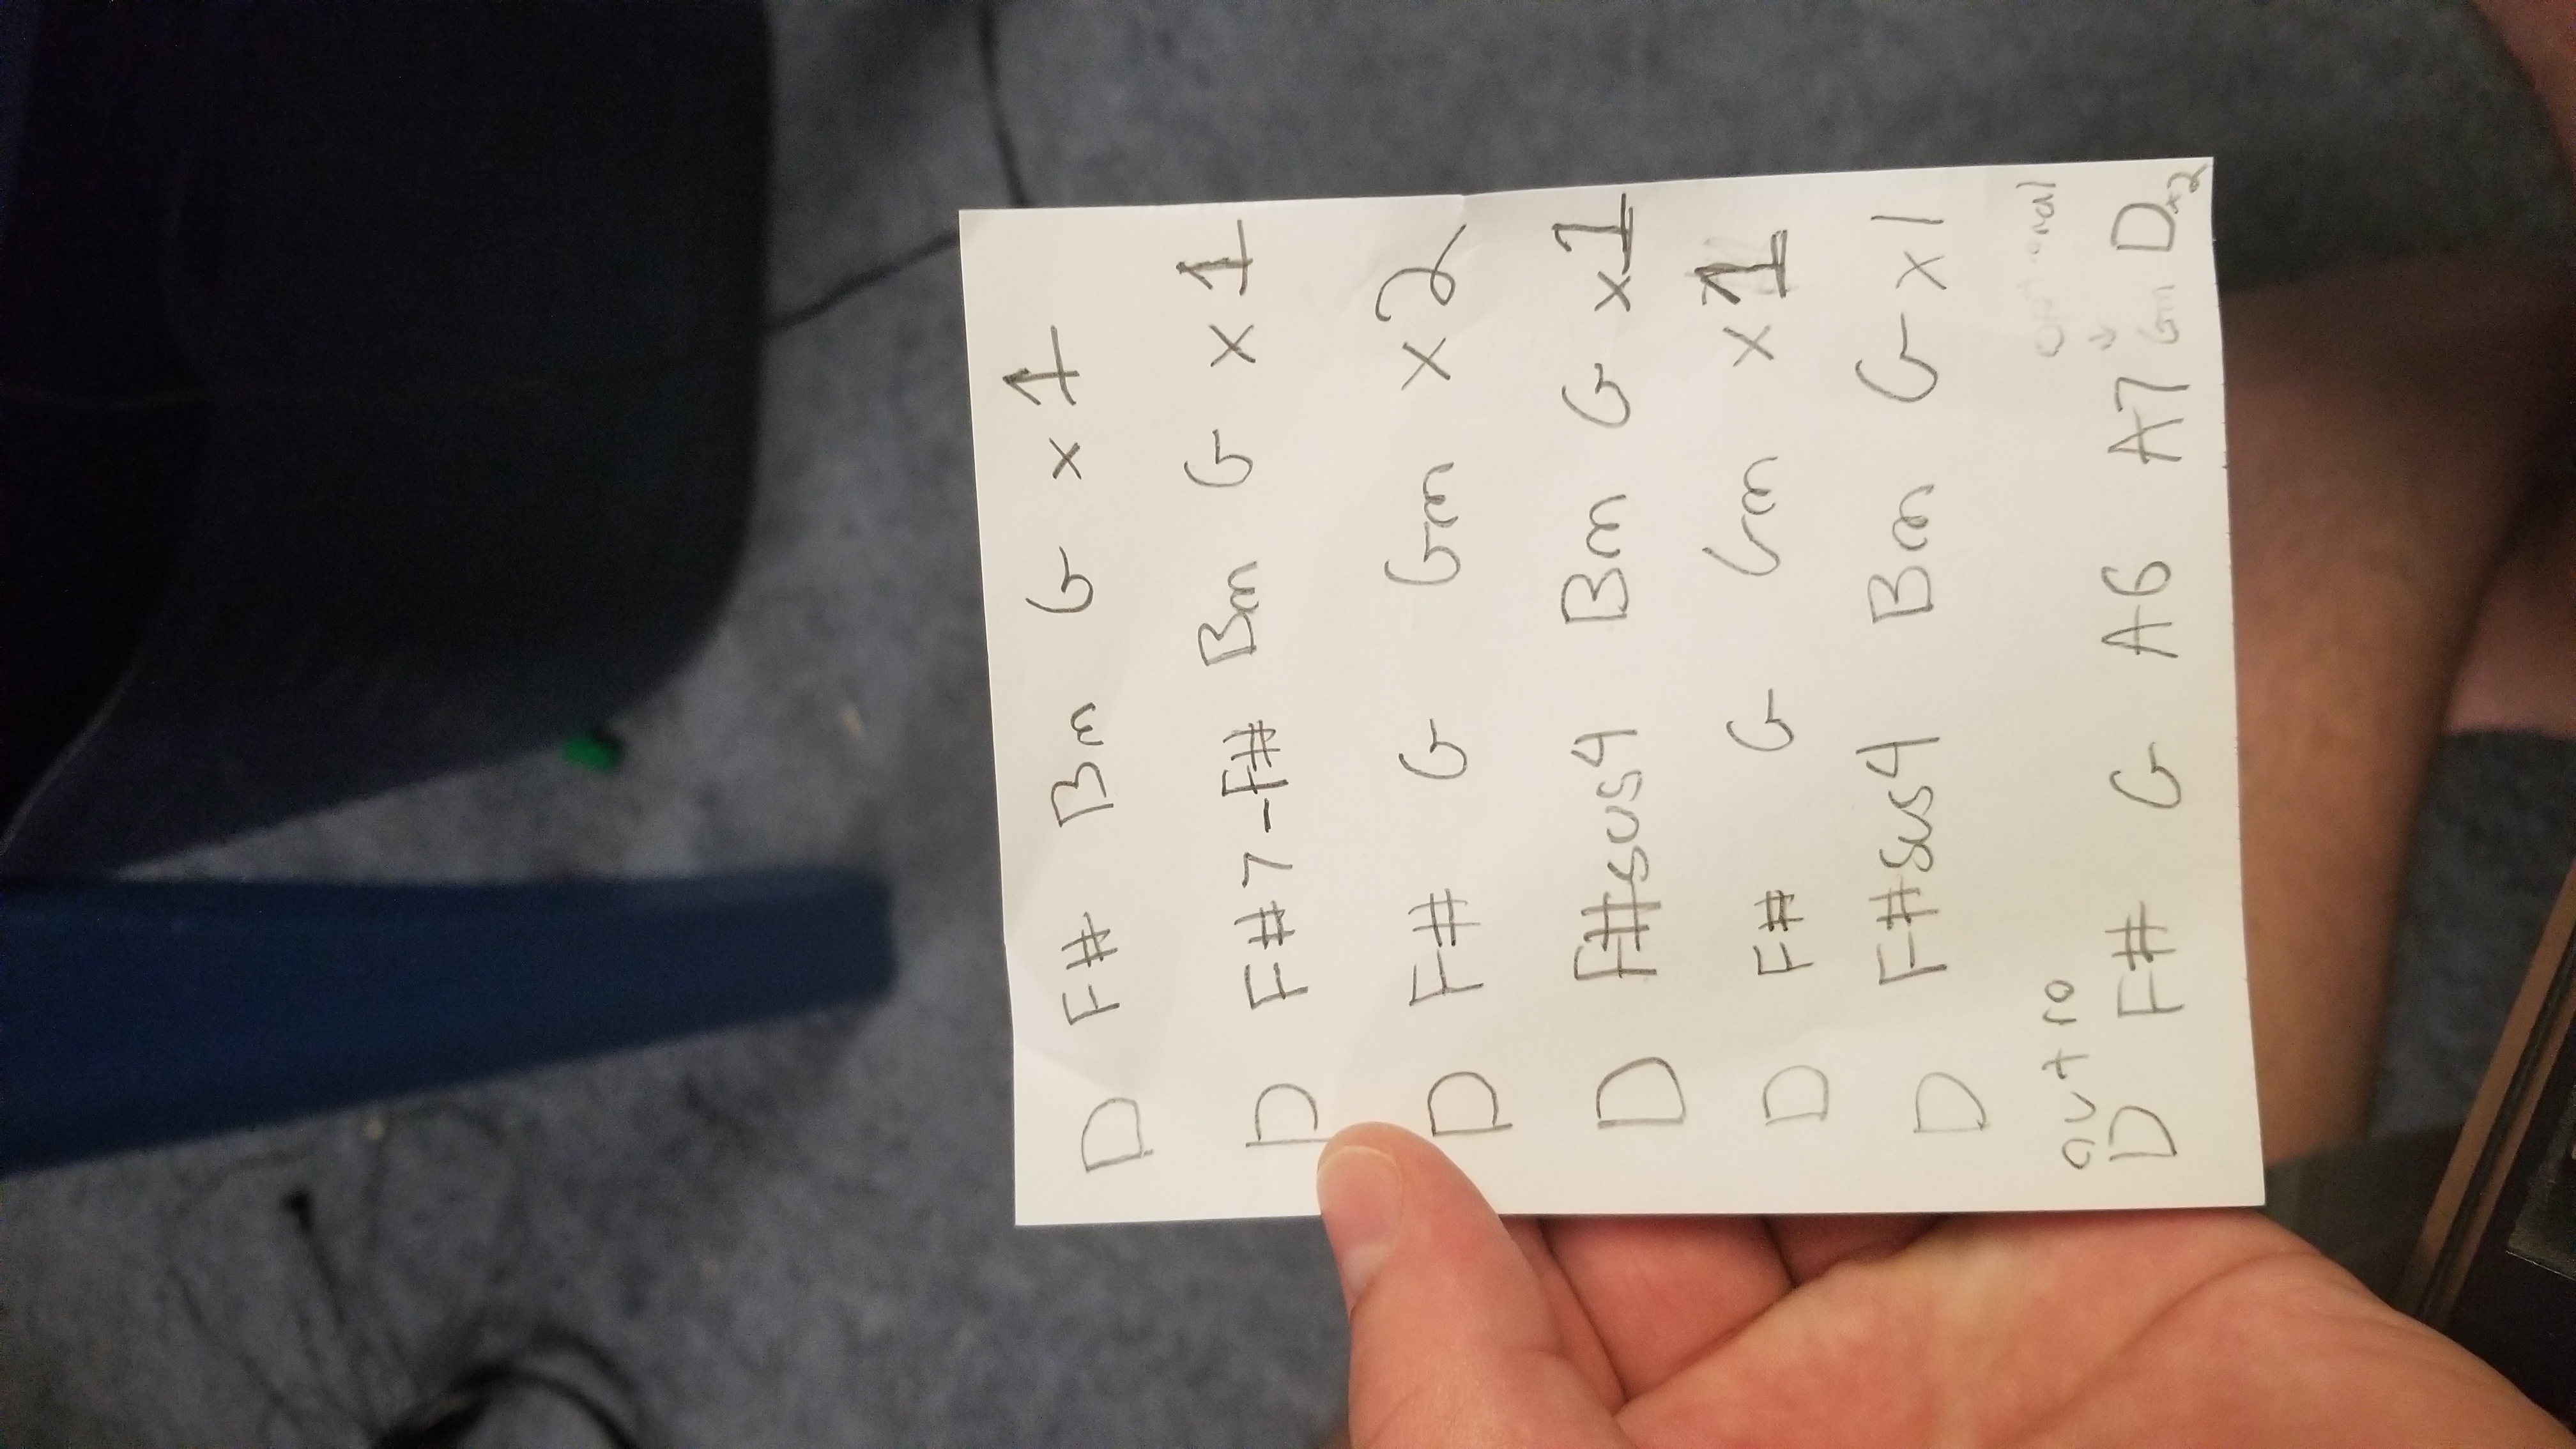 D F# Bm G x 1
D F#7-F# Bm G x 1
D F# G Gm x 2
D F#sus4 Bm G x 1
D F# G Gm x 1
D F#sus4 Bm G x 1
outro optional
D F# G A6 A7 Gm D x2